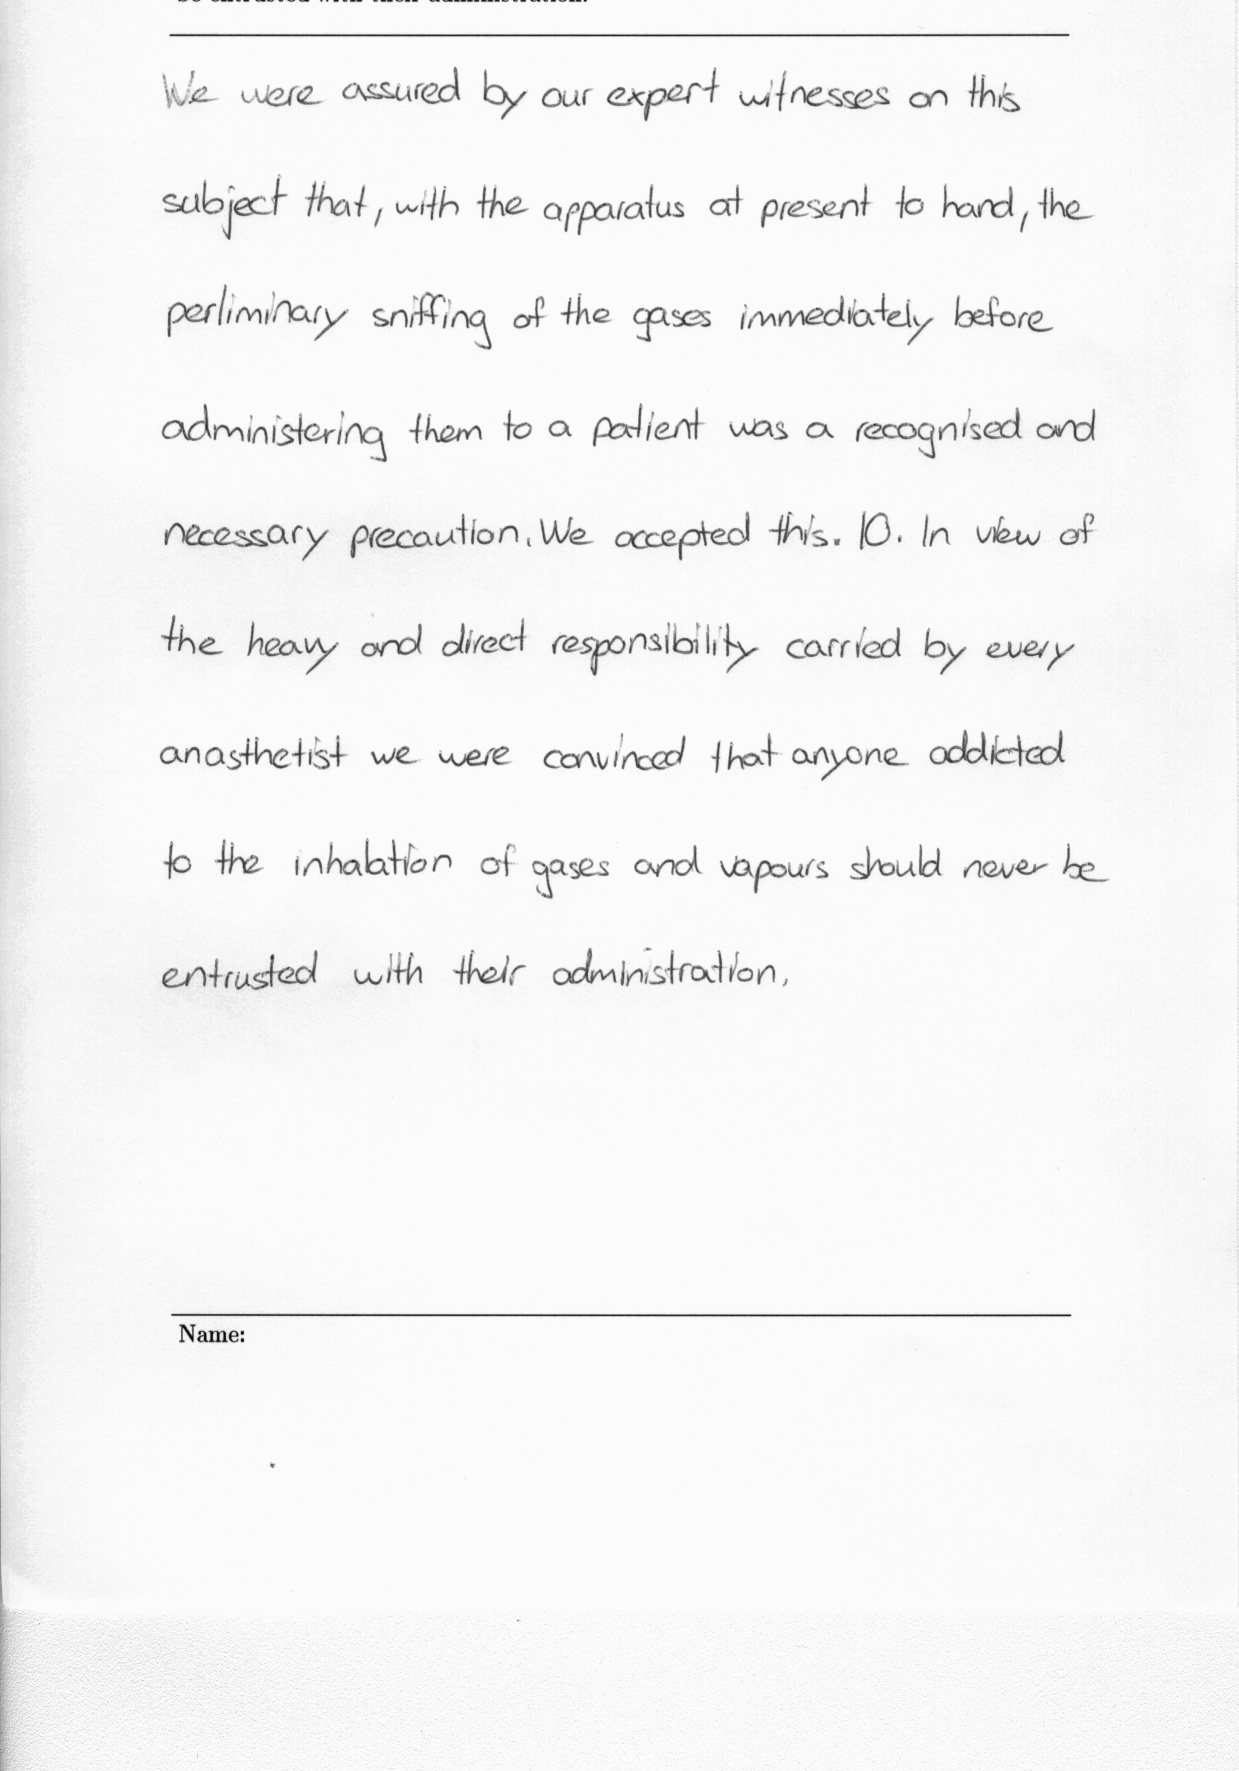 be entrusted with their administration.
We were assured by our expert witnesses on this
subject that, with the apparatus at present to hand, the
perliminary sniffing of the gases immediately before
administering them to a patient was a recognised and
necessary precaution. We accepted this. 10. In view of
the heavy and direct responsibility carried by every
anasthetist we were convinced that anyone addicted
to the inhalation of gases and vapours should never be
entrusted with their administration.
Name: